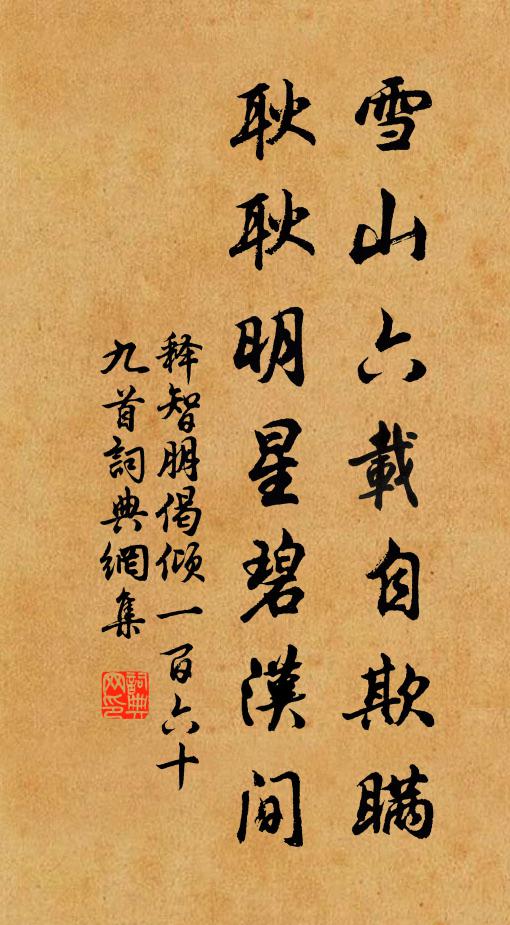 雪山六載自欺瞞
耿耿明星碧漢間
释智朋偈傾一百六十
九首詞典網集
詞典网印